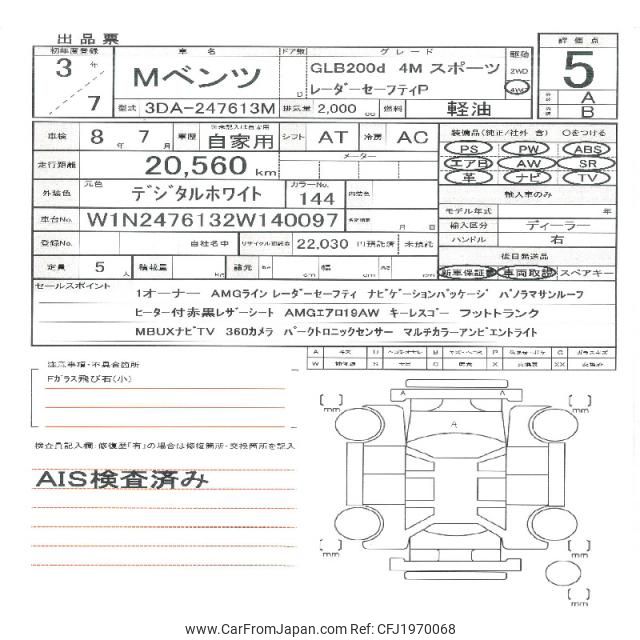 出品票
初年度登録 車名 ドア数 グレード 駆動 評価点
3年 / 7 Mベンツ D GLB200d 4M スポーツ 2WD 5
レーダーセーフティP 4WD A
型式 3DA-247613M 排気量 2,000 cc 燃料 軽油 B
車検 8年 7月 車歴 自家用 シフト AT 冷房 AC 装備品(純正/社外 含) Oをつける
走行距離 20,560 km メーター PS PW ABS
エアB AW SR
革 ナビ TV
外装色 元色 デジタルホワイト カラーNo. 144 内装色 輸入車のみ
モデル年式 年
車台No. W1N2476132W140097 月 日 輸入区分 ディーラー
登録No. 自社名中 リサイクル預託金 22,030 円預託済 未預託 ハンドル 右
定員 5人 積載量 kg 諸元 長 cm 幅 cm 高 cm 後日発送品
新車保証書 車両取説 スペアキー
セールスポイント
1オーナー AMGライン レーダーセーフティ ナビゲーションパッケージ パノラマサンルーフ
ヒーター付赤黒レザーシート AMGエアロ19AW キーレスゴー フットトランク
MBUXナビTV 360カメラ パークトロニックセンサー マルチカラーアンビエントライト
注意事項・不具合箇所
Fガラス飛び石(小)
検査員記入欄:修復歴「有」の場合は修復箇所・交換箇所を記入
AIS検査済み
A A
A
mm mm
mm mm
mm
www.CarFromJapan.com Ref: CFJ1970068